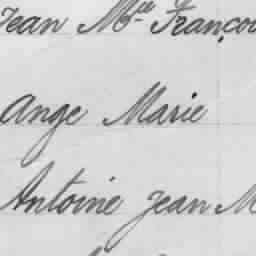 Jean Mie Françoi
Ange Marie
Antoine Jean M